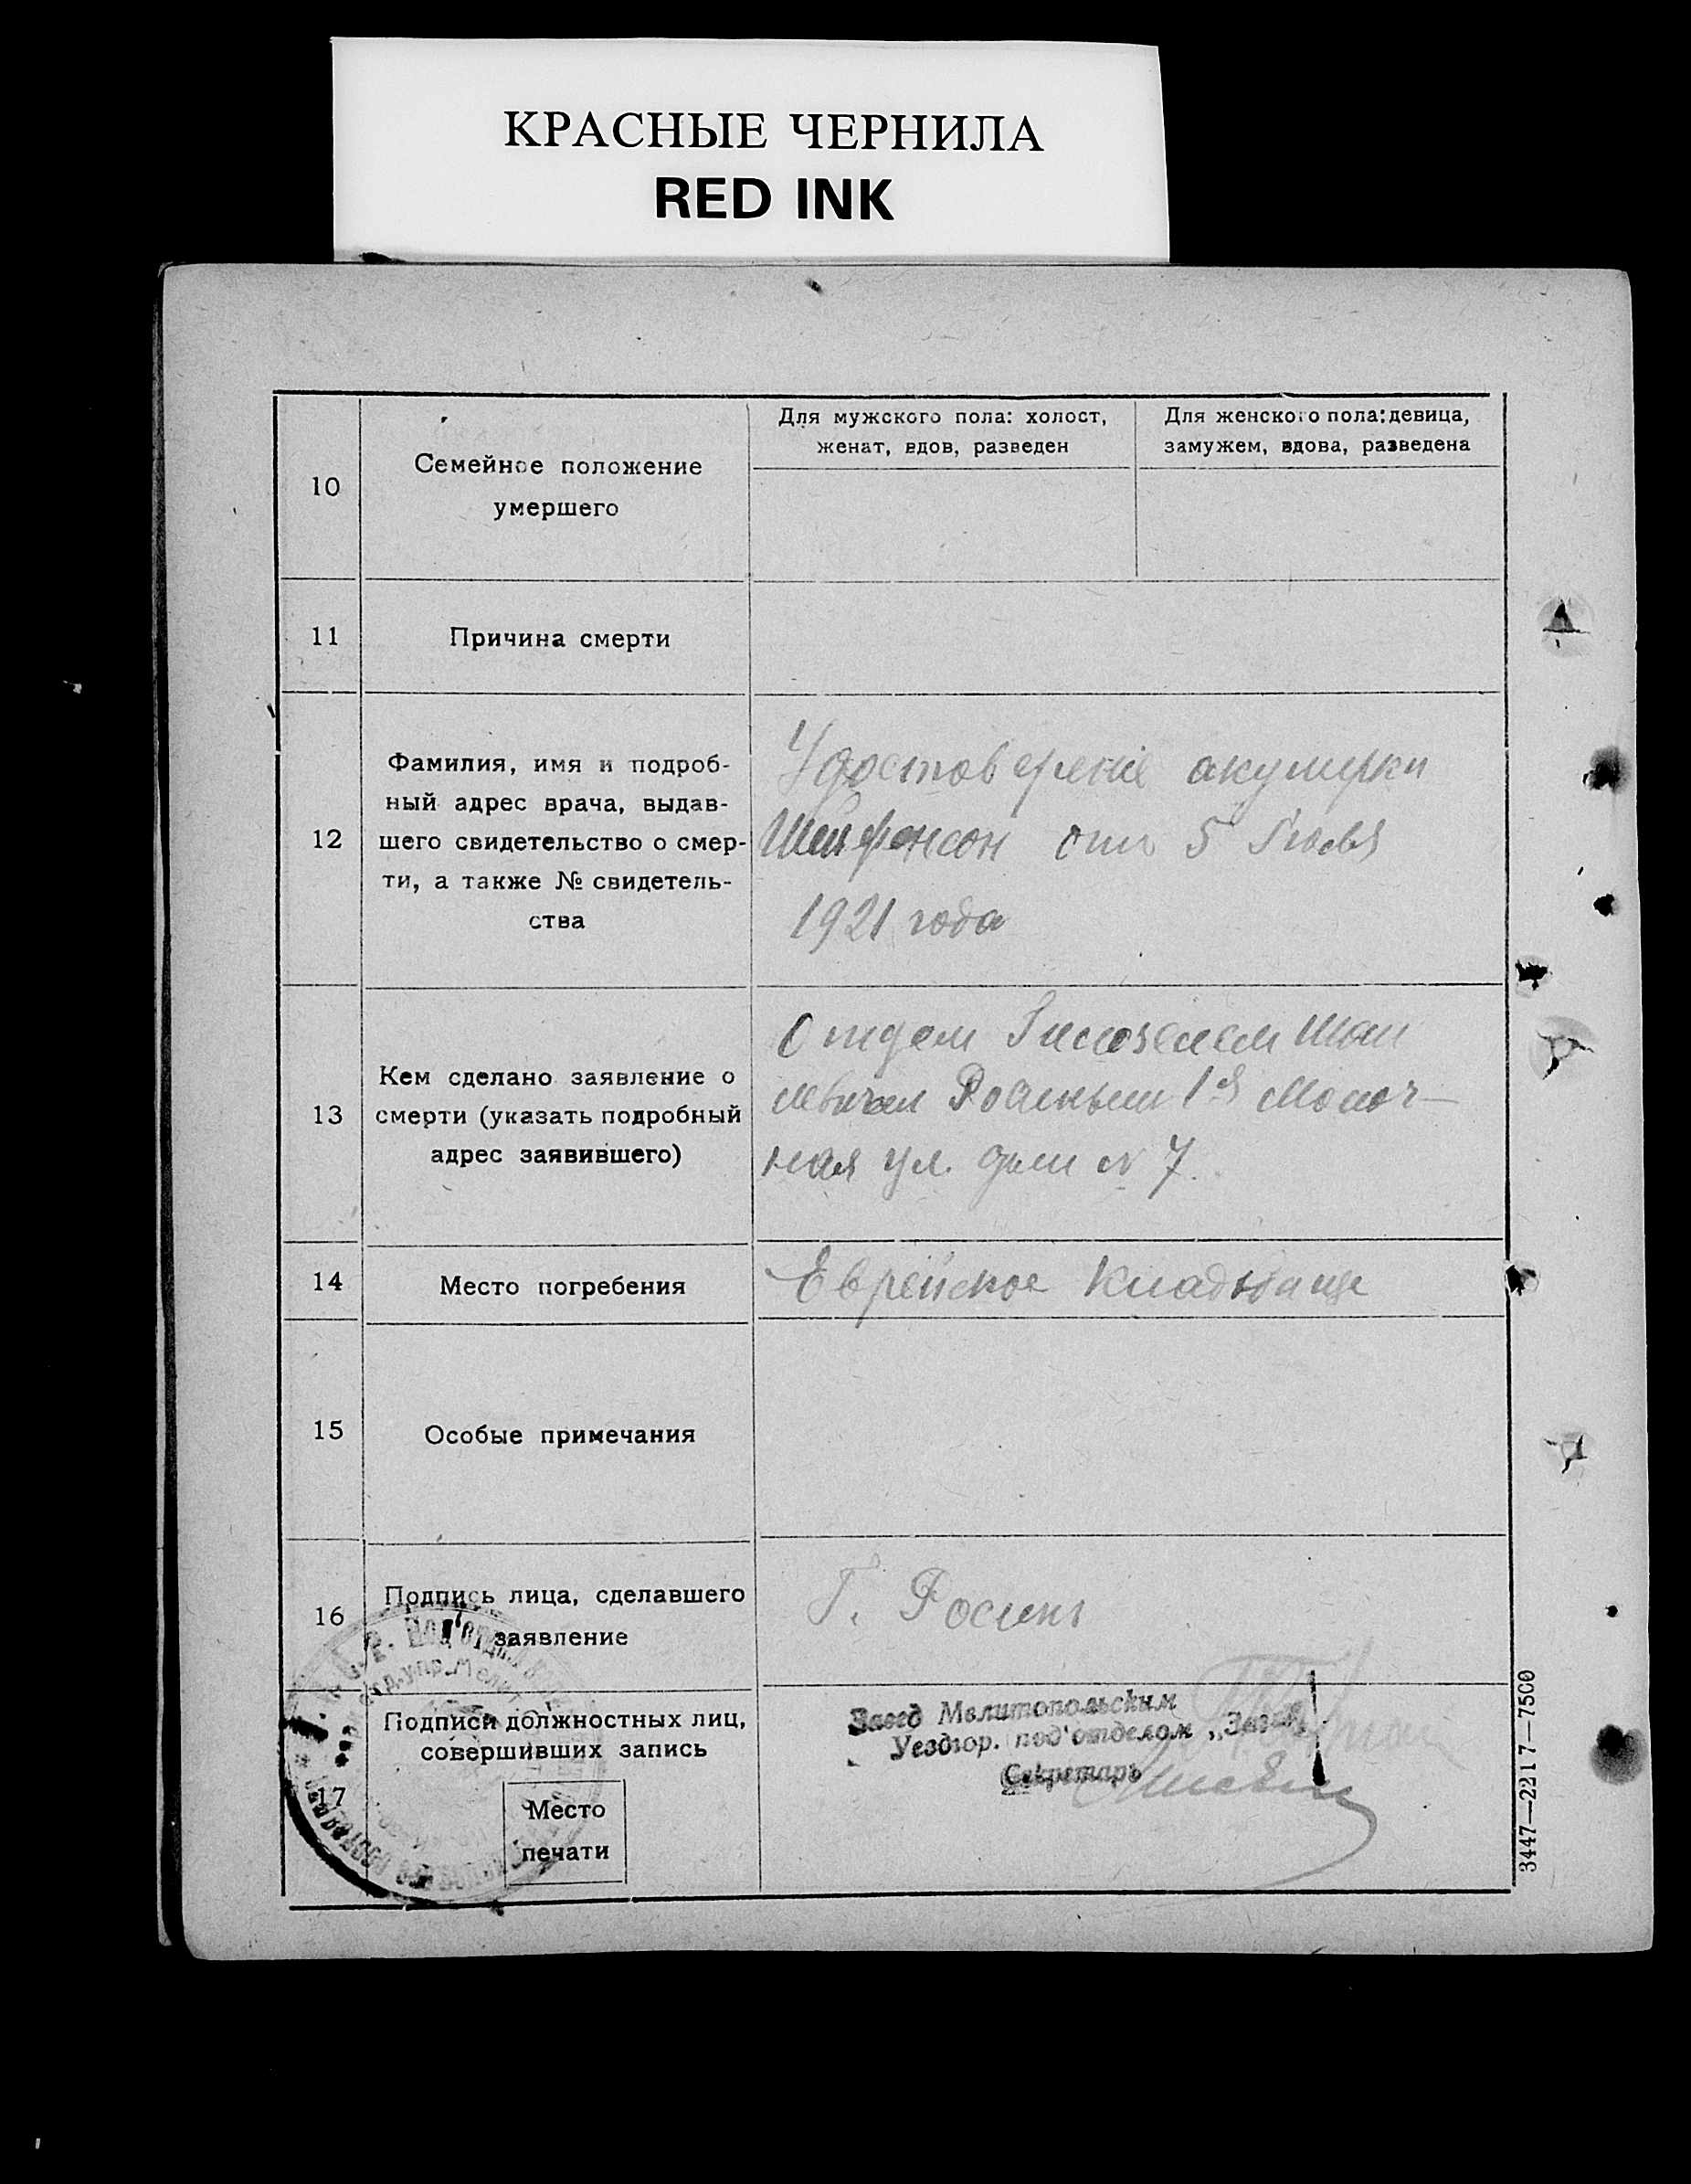 КРАСНЫЕ ЧЕРНИЛА
RED INK
10
Семейное положение
умершего
Для мужского пола: холост,
женат, вдов, разведен
Для женского пола: девица,
замужем, вдова, разведена
11
Причина смерти
12
Фамилия, имя и подроб-
ный адрес врача, выдав-
шего свидетельство о смер-
ти, а также № свидетель-
ства
Удостоверение акушерки
от 5
1921 года
13
Кем сделано заявление о
смерти (указать подробный
адрес заявившего)
Отцем
1я Молоч-
ная ул. дом № 7.
14
Место погребения
Еврейское Кладбище
15
Особые примечания
16
Подпись лица, сделавшего
заявление
Г.
17
Подписи должностных лиц,
совершивших запись
Место
печати
Завед Мелитопольским
Уездгор. под'отделом „Загса“
Секретарь
3447—2217—7500